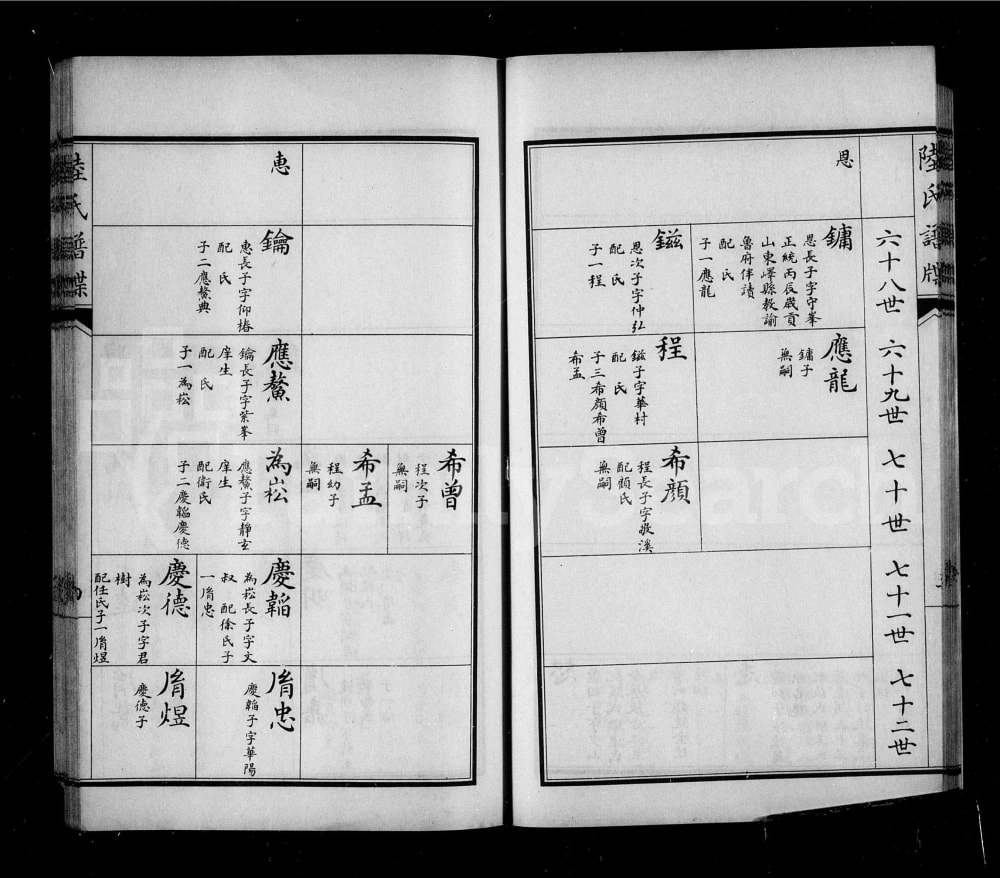 陸氏譜牒
六十八世
六十九世
七十世
七十一世
七十二世
恩
鏞
恩長子字守峯
正統丙辰歲貢
山東嶧縣教諭
魯府伴讀
配　氏
子一應龍
鎡
恩次子字仲弘
配　氏
子一程
應龍
鏞子
無嗣
程
鎡子字華村
配　氏
子三希顏希曾
希孟
希顏
程長子字
配顏氏
無嗣
希曾
程次子
無嗣
希孟
程幼子
無嗣
惠
鑰
惠長子字仰椿
配　氏
子二應鰲典
應鰲
鑰長子字紫峯
庠生
配　氏
子一為崧
為崧
應鰲子字靜玄
庠生
配衛氏
子二慶韜慶德
慶韜
為崧長子字文
叔　配徐氏子
一胤忠
慶德
為崧次子字君
樹
配任氏子一胤煜
胤忠
慶韜子字華陽
胤煜
慶德子
陸氏譜牒